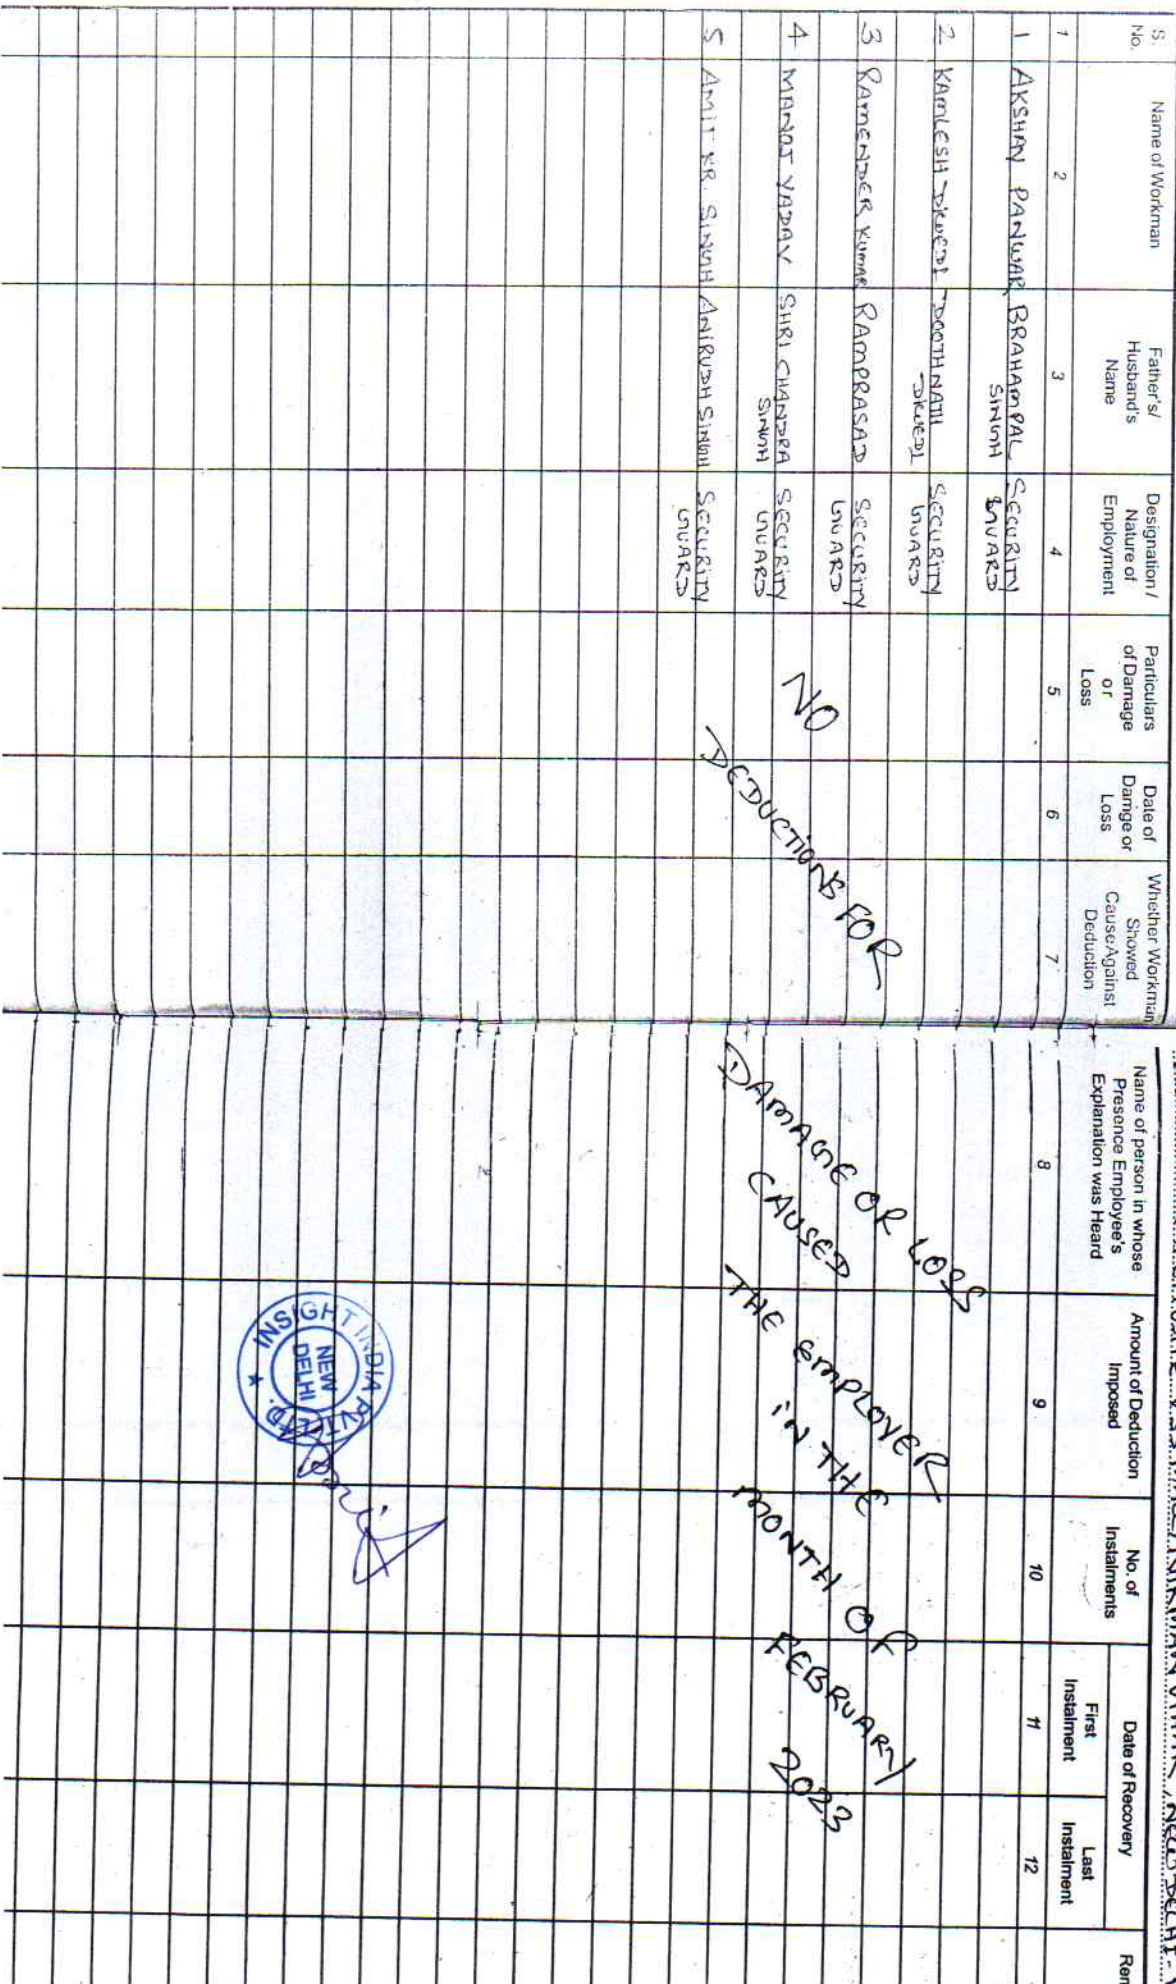 S. No.
Name of Workman
Father's/ Husband's Name
Designation / Nature of Employment
Particulars of Damage or Loss
Date of Damge or Loss
Whether Workman Showed Cause Against Deduction
Name of person in whose Presence Employee's Explanation was Heard
Amount of Deduction Imposed
No. of Instalments
Date of Recovery
First Instalment
Last Instalment
1 2 3 4 5 6 7 8 9 10 11 12
1 AKSHAY PANWAR BRAHAMPAL SINGH SECURITY GUARD
2 KAMLESH DKVEDI DOOTHNATH DKVEDI SECURITY GUARD
3 RAMENDER KUMAR RAMPRASAD SECURITY GUARD
4 MANOJ YADAV SHRI CHANDRA SINGH SECURITY GUARD
5 AMIT KR. SINGH ANIRUDH SINGH SECURITY GUARD
NO
DEDUCTIONS FOR
DAMAGE OR LOSS
CAUSED
THE EMPLOYER
IN THE
MONTH OF
FEBRUARY
2023
INSIGHT INDIA PVT. LTD.
NEW
DELHI
NEW DELHI